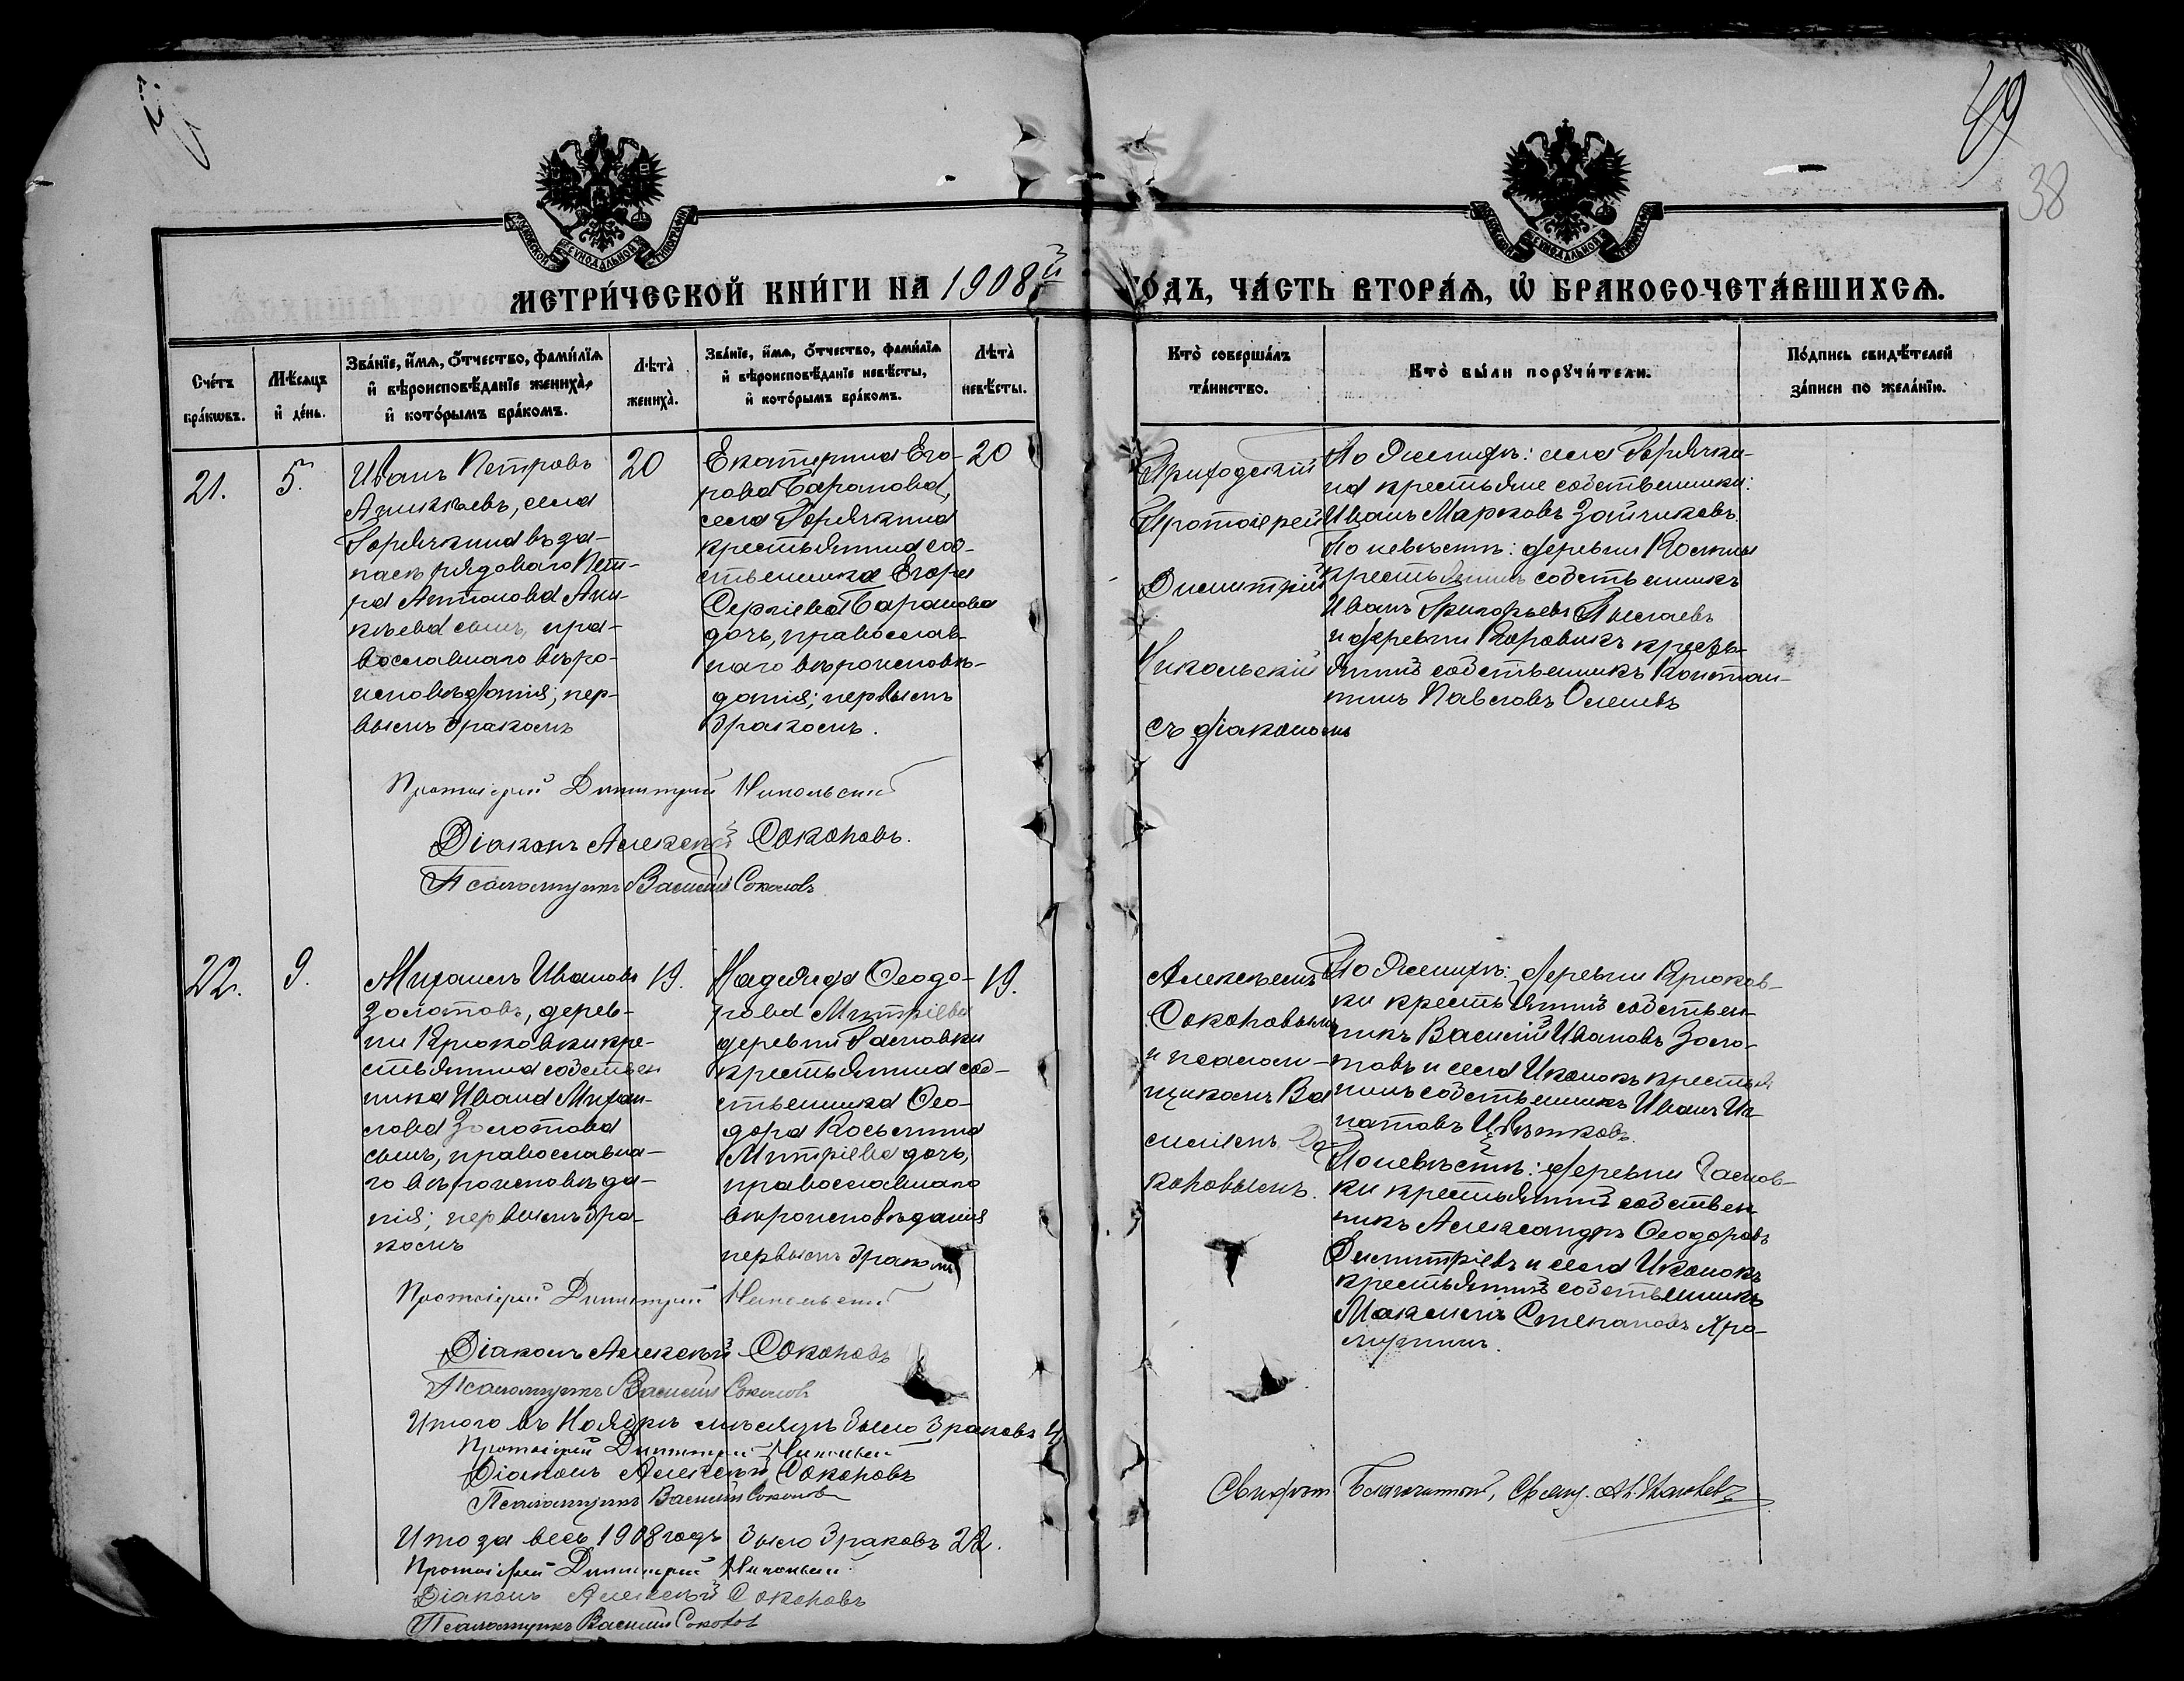 49
38
МОСКОВСКОЙ СѴНОДАЛЬНОЙ ТИПОГРАФІИ
МОСКОВСКОЙ СѴНОДАЛЬНОЙ ТИПОГРАФІИ
МЕТРИ́ЧЕСКОЙ КНИ́ГИ НА 1908й
ГО́ДЪ, ЧА́СТЬ ВТОРА́Ѧ, Ѡ҆ БРАКОСОЧЕТА́ВШИХСѦ.
Сче́тъ
бра́кѡвъ.
Мѣ́сѧцъ
и҆ де́нь.
Зва́нїе, и҆́мѧ, ѻ҆́тчество, фами́лїѧ
и҆ вѣроисповѣ́данїе жениха̀,
и҆ кото́рымъ бра́комъ.
Лѣ́та
жениха̀.
Зва́нїе, и҆́мѧ, ѻ҆́тчество, фами́лїѧ
и҆ вѣроисповѣ́данїе невѣ́сты,
и҆ кото́рымъ бра́комъ.
Лѣ́та
невѣ́сты.
Кто̀ соверша́лъ
та́инство.
Кто̀ бы́ли порꙋчи́тели.
По́дпись свидѣ́телей
за́писи по жела́нїю.
21.
5.
Иванъ Петровъ
Аникѣевъ, села
Горячкина въ за-
пасѣ рядового Пет-
ра Антонова Ани-
кѣева сынъ, пра-
вославнаго вѣро-
исповѣданія; пер-
вымъ бракомъ
20
Екатерина Его-
рова Баранова,
села Горячкина
крестьянина соб-
ственника Егора
Сергіева Баранова
дочь, православ-
наго вѣроисповѣ-
данія; первымъ
бракомъ.
20
Приходскій
Протоіерей
Димитрій
Никольскій
съ діакономъ
По женихѣ: села Горячки-
на крестьяне собственники:
Иванъ Марковъ Зайчиковъ.
По невѣстѣ: деревни
крестьянинъ собственникъ
Иванъ Григорьевъ
и деревни Коровикъ кресть-
янинъ собственникъ Констан-
тинъ Павловъ
Протоіерей Димитрій Никольскій
Діаконъ Алексѣй Соколовъ.
Псаломщикъ Василій Соколовъ
22.
9.
Михаилъ Ивановъ
Золотовъ, дерев-
ни Крюковки кре-
стьянина собствен
ника Ивана Михаи-
лова Золотова
сынъ, православна-
го вѣроисповѣда-
нія; первымъ бра-
комъ
19.
Надежда Ѳеодо-
рова Митріева
деревни
крестьянина соб-
ственника Ѳео-
дора Косьмина
Митріева дочь,
православнаго
вѣроисповѣданія
первымъ бракомъ
19.
Алексѣемъ
Соколовымъ
и псалом-
щикомъ Ва
силіемъ Со-
коловымъ.
По женихѣ: деревни Крюков-
ки крестьянинъ собствен-
никъ Василій Ивановъ Золо-
товъ и села Иконокъ крестья
нинъ собственникъ Иванъ Иг-
натовъ
По невѣстѣ: деревни
ки крестьянинъ собствен
никъ Александръ Ѳеодоровъ
Димитріевъ и села Иконокъ
крестьянинъ собственникъ
Максимъ Степановъ
Протоіерей Димитрій Никольскій
Діаконъ Алексѣй Соколовъ
Псаломщикъ Василій Соколовъ
Итого въ Ноябрѣ мѣсяцѣ было браковъ 4
Протоіерей Димитрій Никольскій
Діаконъ Алексѣй Соколовъ
Псаломщикъ Василій Соколовъ
Итого за весь 1908 годъ было браковъ 22.
Протоіерей Димитрій Никольскій
Діаконъ Алексѣй Соколовъ
Псаломщикъ Василій Соколовъ
Благочинный, Свящ.